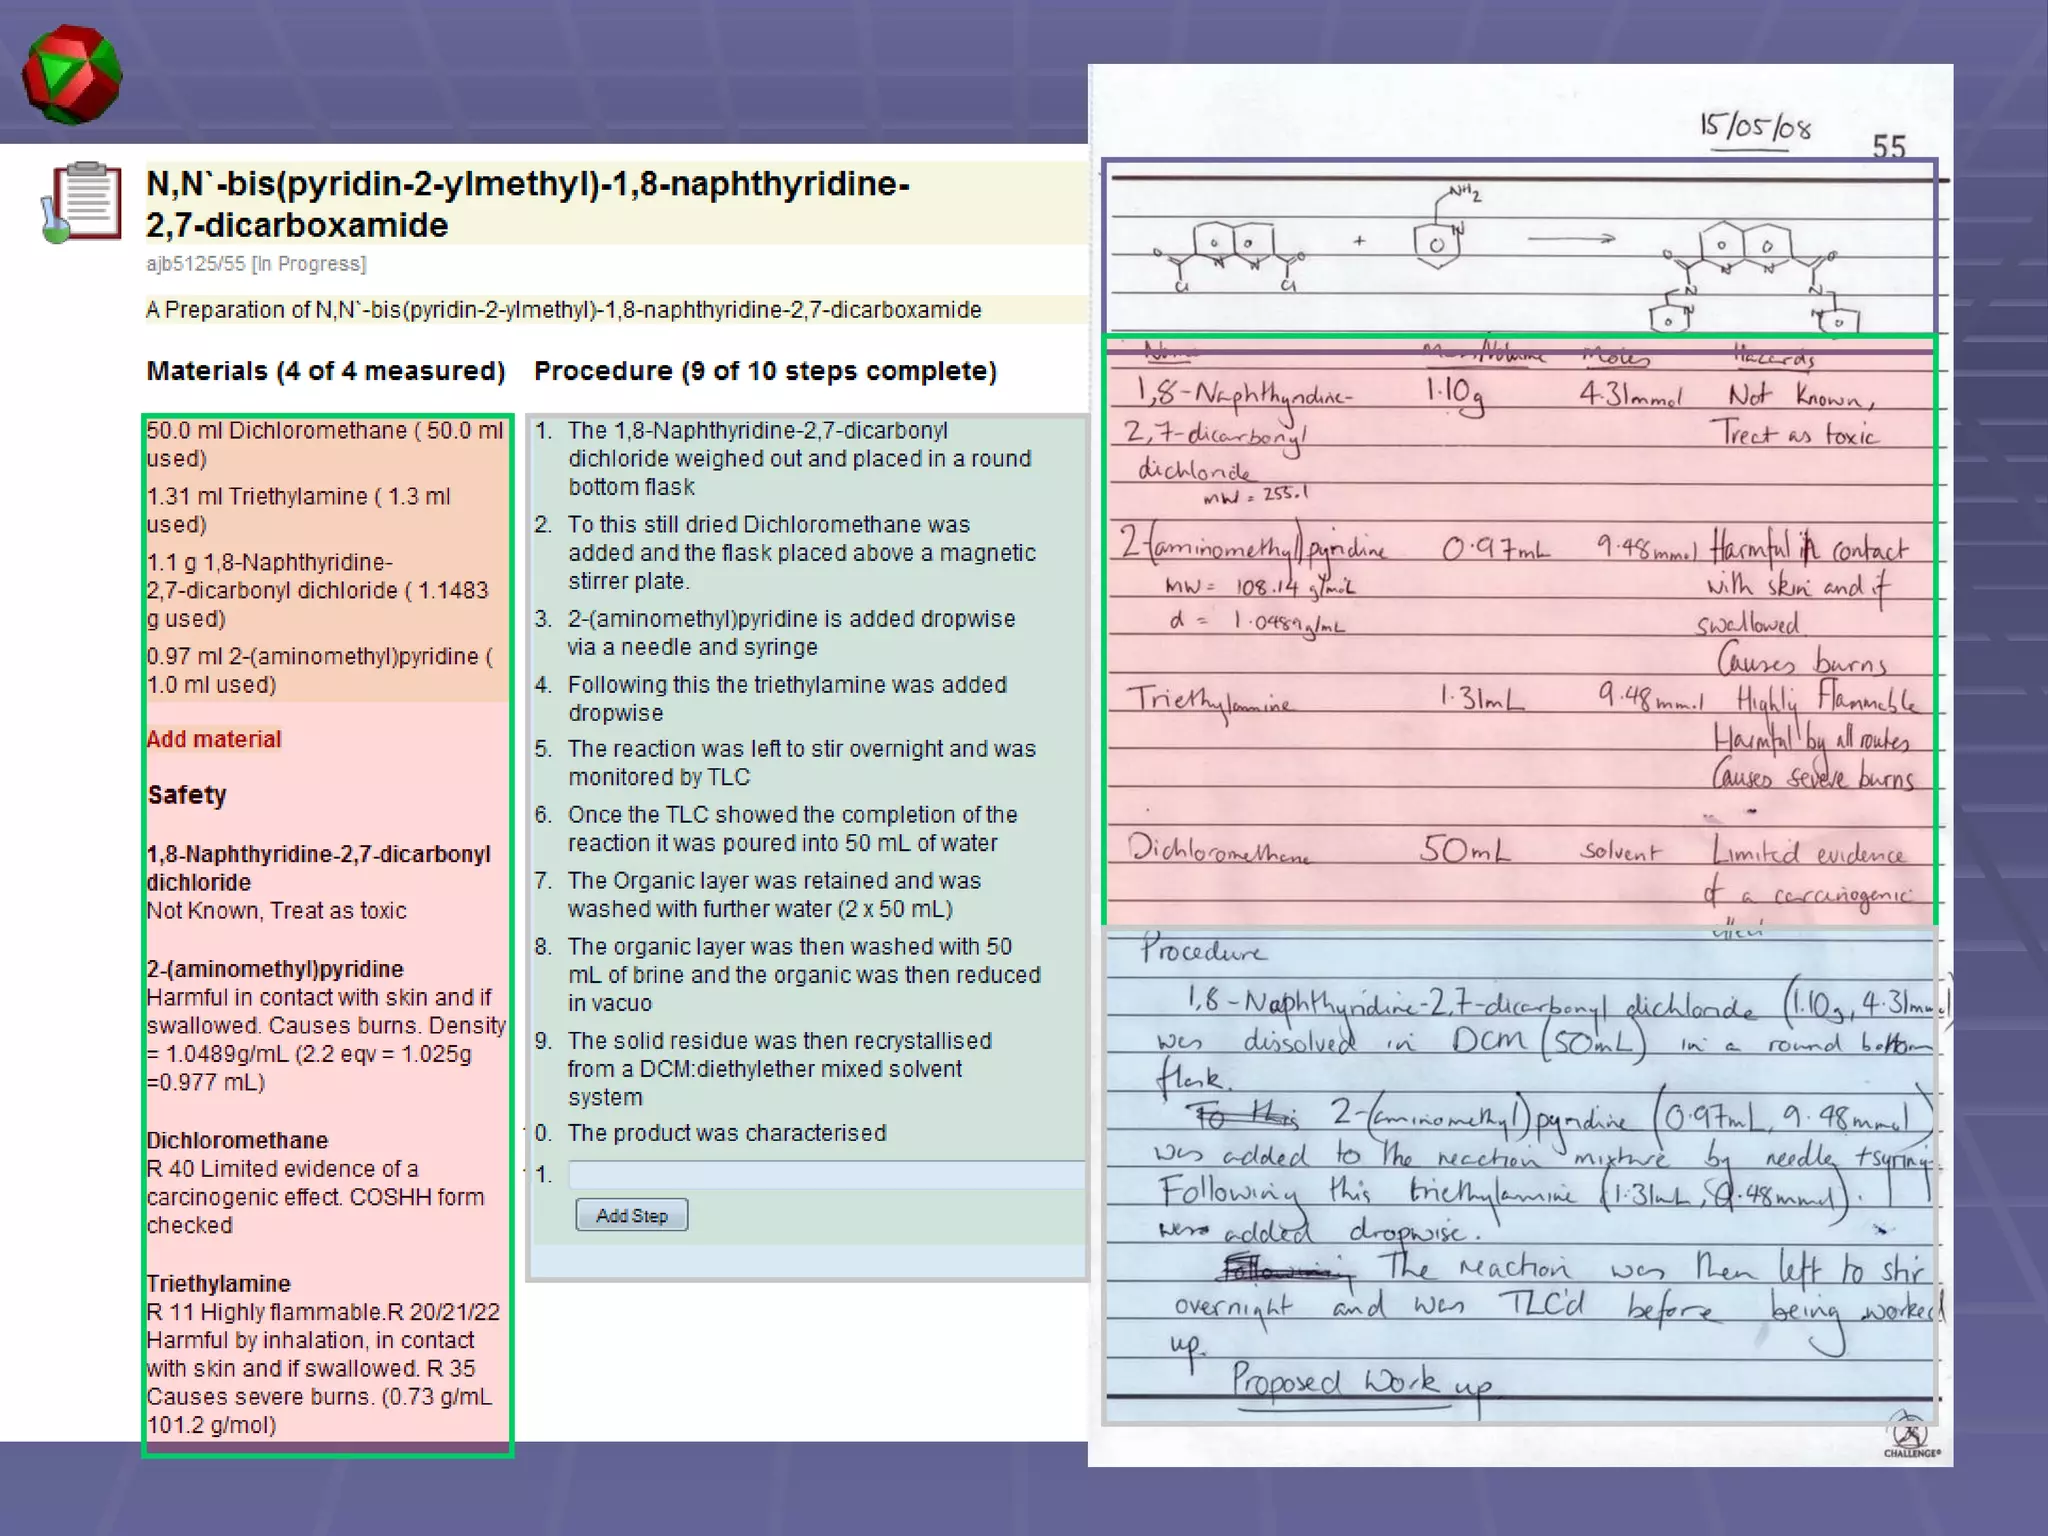 N,N`-bis(pyridin-2-ylmethyl)-1,8-naphthyridine-
2,7-dicarboxamide
ajb5125/55 [In Progress]
A Preparation of N,N`-bis(pyridin-2-ylmethyl)-1,8-naphthyridine-2,7-dicarboxamide
Materials (4 of 4 measured)
50.0 ml Dichloromethane ( 50.0 ml
used)
1.31 ml Triethylamine ( 1.3 ml
used)
1.1 g 1,8-Naphthyridine-
2,7-dicarbonyl dichloride ( 1.1483
g used)
0.97 ml 2-(aminomethyl)pyridine (
1.0 ml used)
Add material
Safety
1,8-Naphthyridine-2,7-dicarbonyl
dichloride
Not Known, Treat as toxic
2-(aminomethyl)pyridine
Harmful in contact with skin and if
swallowed. Causes burns. Density
= 1.0489g/mL (2.2 eqv = 1.025g
=0.977 mL)
Dichloromethane
R 40 Limited evidence of a
carcinogenic effect. COSHH form
checked
Triethylamine
R 11 Highly flammable.R 20/21/22
Harmful by inhalation, in contact
with skin and if swallowed. R 35
Causes severe burns. (0.73 g/mL
101.2 g/mol)
Procedure (9 of 10 steps complete)
1. The 1,8-Naphthyridine-2,7-dicarbonyl
dichloride weighed out and placed in a round
bottom flask
2. To this still dried Dichloromethane was
added and the flask placed above a magnetic
stirrer plate.
3. 2-(aminomethyl)pyridine is added dropwise
via a needle and syringe
4. Following this the triethylamine was added
dropwise
5. The reaction was left to stir overnight and was
monitored by TLC
6. Once the TLC showed the completion of the
reaction it was poured into 50 mL of water
7. The Organic layer was retained and was
washed with further water (2 x 50 mL)
8. The organic layer was then washed with 50
mL of brine and the organic was then reduced
in vacuo
9. The solid residue was then recrystallised
from a DCM:diethylether mixed solvent
system
10. The product was characterised
11.
Add Step
15/05/08 55
NH2
N
+
O O N N Cl Cl
O O N N N N N N
Name Mass/Volume Moles Hazards
1,8-Naphthyridine- 1.10g 4.31mmol Not Known,
2,7-dicarbonyl Treat as toxic
dichloride
MW = 255.1
2-(aminomethyl)pyridine 0.97mL 9.48mmol Harmful in contact
MW = 108.14 g/mol with skin and if
d = 1.0489g/mL swallowed.
Causes burns
Triethylamine 1.31mL 9.48mmol Highly Flammable
Harmful by all routes
Causes severe burns
Dichloromethane 50mL solvent Limited evidence
of a carcinogenic
effect
Procedure
1,8-Naphthyridine-2,7-dicarbonyl dichloride (1.10g, 4.31mmol)
was dissolved in DCM (50mL) in a round bottom
flask.
To this 2-(aminomethyl)pyridine (0.97mL, 9.48mmol)
was added to the reaction mixture by needle + syringe
Following this triethylamine (1.31mL, 9.48mmol).
was added dropwise.
Following The reaction was then left to stir
overnight and was TLC'd before being worked
up.
Proposed Work up
CHALLENGE®